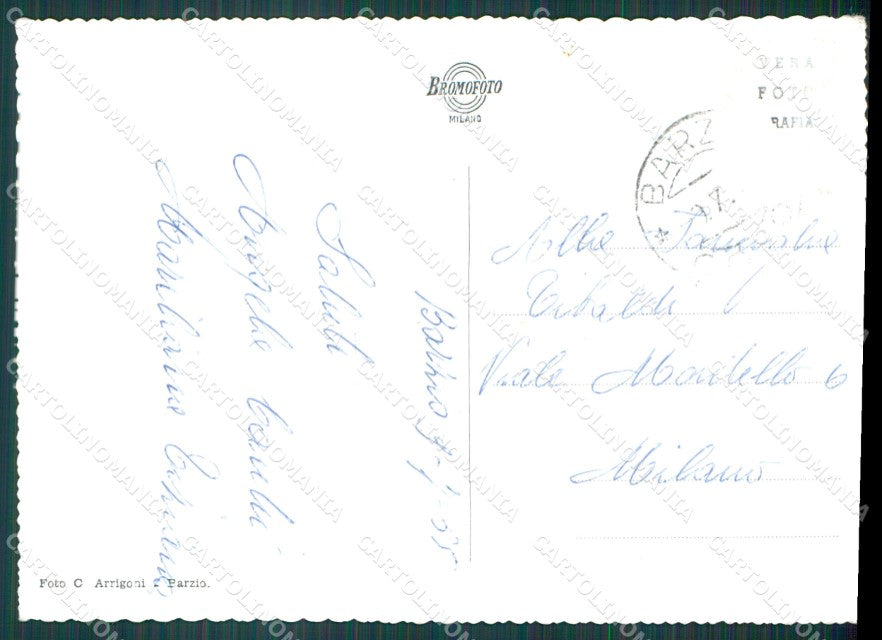 BROMOFOTO
MILANO
VERA
FOTO
RAFIA
BARZ
Barzio 9-7-55
Saluti
Angela
Alla Famiglia
Tibaldi
Viale Montello 6
Milano
Foto C Arrigoni - Barzio.
CARTOLINOMANIA